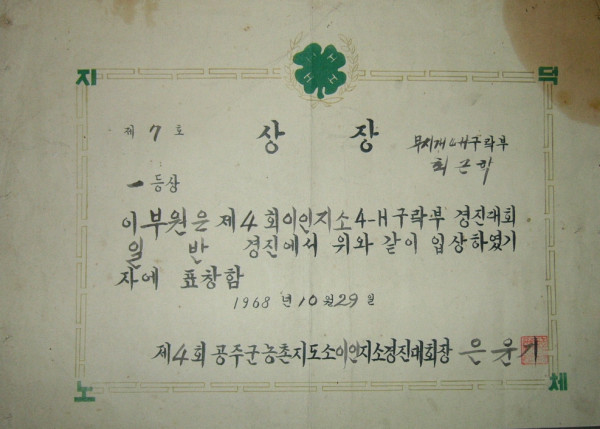 지 덕
H H H H
제 7 호
상 장
무지개 4H구락부
최근학
一등상
이부원은 제4회이인지소4-H구락부 경진대회
일 반 경진에서 위와 같이 입상하였기
자에 표창함
1968 년 10 월 29 일
제4회 공주군농촌지도소이인지소경진대회장 은 윤 기
노 체